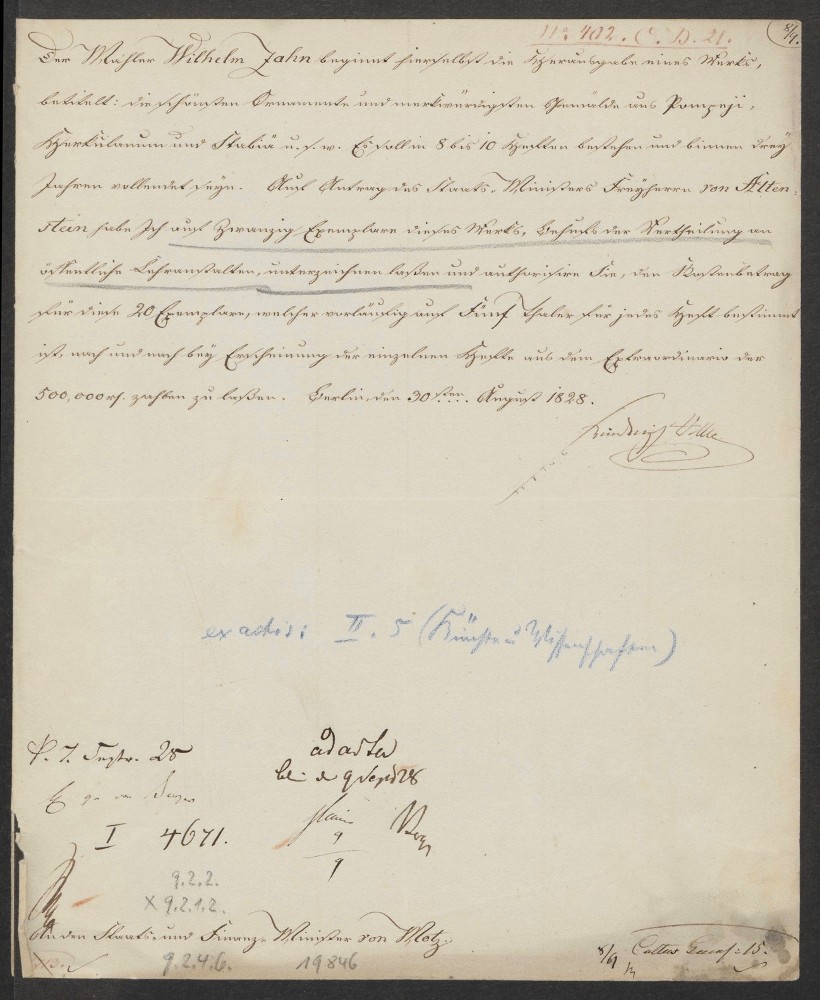 No 402. C. B. 21.
8/9.
Der Mahler Wilhelm Zahn beginnt hierselbst die Herausgabe eines Werks,
betitelt: die schönsten Ornamente und merkwürdigsten Gemälde aus Pompeji,
Herkulanum und Stabiä u. s. w. Es soll in 8 bis 10 Heften bestehen und binnen drey
Jahren vollendet seyn. Auf Antrag des Staats-Ministers Freyherrn von Alten-
stein habe Ich auf Zwanzig Exemplare dieses Werks, Behufs der Vertheilung an
öffentliche Lehranstalten, unterzeichnen laßen und authorisire Sie, den Kostenbetrag
für diese 20 Exemplare, welcher vorläufig auf Fünf Thaler für jedes Heft bestimmt
ist, nach und nach bey Erscheinung der einzelnen Hefte aus dem Extraordinario der
500,000 rh. zahlen zu laßen. Berlin, den 30sten August 1828.
ex actis: II. 5 (Künste u Wissenschaften)
P. 7. Septr. 28
ad acta
9 Sept 28
I 4671.
9
9
9.2.2.
X 9.2.1.2.
An den Staats- und Finanz-Minister von Motz.
9.2.4.6.
19846
8/9
15.